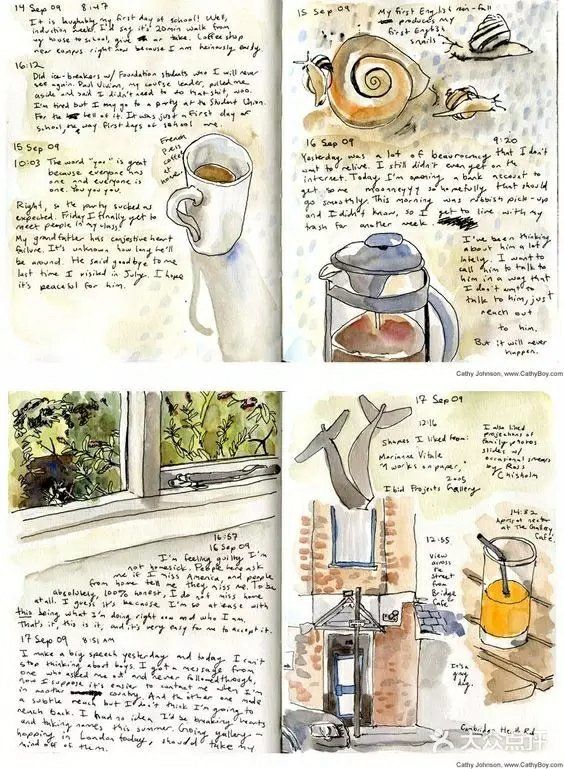 14 Sep 09 8:47
It is laughably my first day of school! Well,
induction week. I'd say it's 20min walk from
my house to school, give or take. Coffee shop
near campus right now because I am heinously early.
16:12
Did ice-breakers w/ Foundation students who I will never
see again. Paul Vivian, my course leader, pulled me
aside and said I didn't need to do that shit, woo.
I'm tired but I may go to a party at the Student Union.
For the hell of it. It was just a first day of
school, the way first days of school are.
French
press
coffee
at
home.
15 Sep 09
10:03 The word "you" is great
because everyone has
one and everyone is
one. You you you.
Right, so the party sucked as
expected. Friday I finally get to
meet people in my class.
My grandfather has congestive heart
failure. It's unknown how long he'll
be around. He said goodbye to me
last time I visited in July. I hope
it's peaceful for him.
15 Sep 09
My first English rain-fall
produces my
first English
snails
16 Sep 09 9:20
Yesterday was a lot of beaurocracy that I don't
want to relive. I still didn't even get on the
internet. Today I'm opening a bank account to
get some moonneyyy so hopefully that should
go smoothly. This morning was rubbish pick-up
and I didn't know, so I get to live with my
trash for another week.
I've been thinking
about him a lot
lately. I want to
call him to talk to
him in a way that
I don't want to
talk to him, just
reach out
to him.
But it will never
happen.
Cathy Johnson, www.CathyBoy.com
16:57
16 Sep 09
I'm feeling guilty I'm
not homesick. People here ask
me if I miss America, and people
from home tell me they miss me. To be
absolutely, 100% honest, I do not miss home
at all. I guess it's because I'm so at ease with
this being what I'm doing right now and who I am.
That's it, this is it, and it's very easy for me to accept it.
17 Sep 09 8:51 AM
I make a big speech yesterday and today I can't
stop thinking about boys. I got a message from
one who asked me out and never followed through,
now I suppose it's easier to contact me when I'm
in another country. And the other one made
a subtle reach but I don't think I'm going to
reach back. I had no idea I'd be breaking hearts
and taking names this summer. Going gallery-
hopping in London today, should take my
mind off of them.
17 Sep 09
12:16
Shapes I liked from:
Marianne Vitale
"Works on paper,"
2005
Ibid Projects Gallery
I also liked
projections of
family photos
slides w/
occasional smears
by Ross
Chisholm
12:55
View
across
the
street
from
Bridge
Cafe
14:32
Apricot nectar
at The Gallery
Cafe.
It's a
gray
day.
Cambridge Heath Rd
大众点评
Cathy Johnson, www.CathyBoy.com